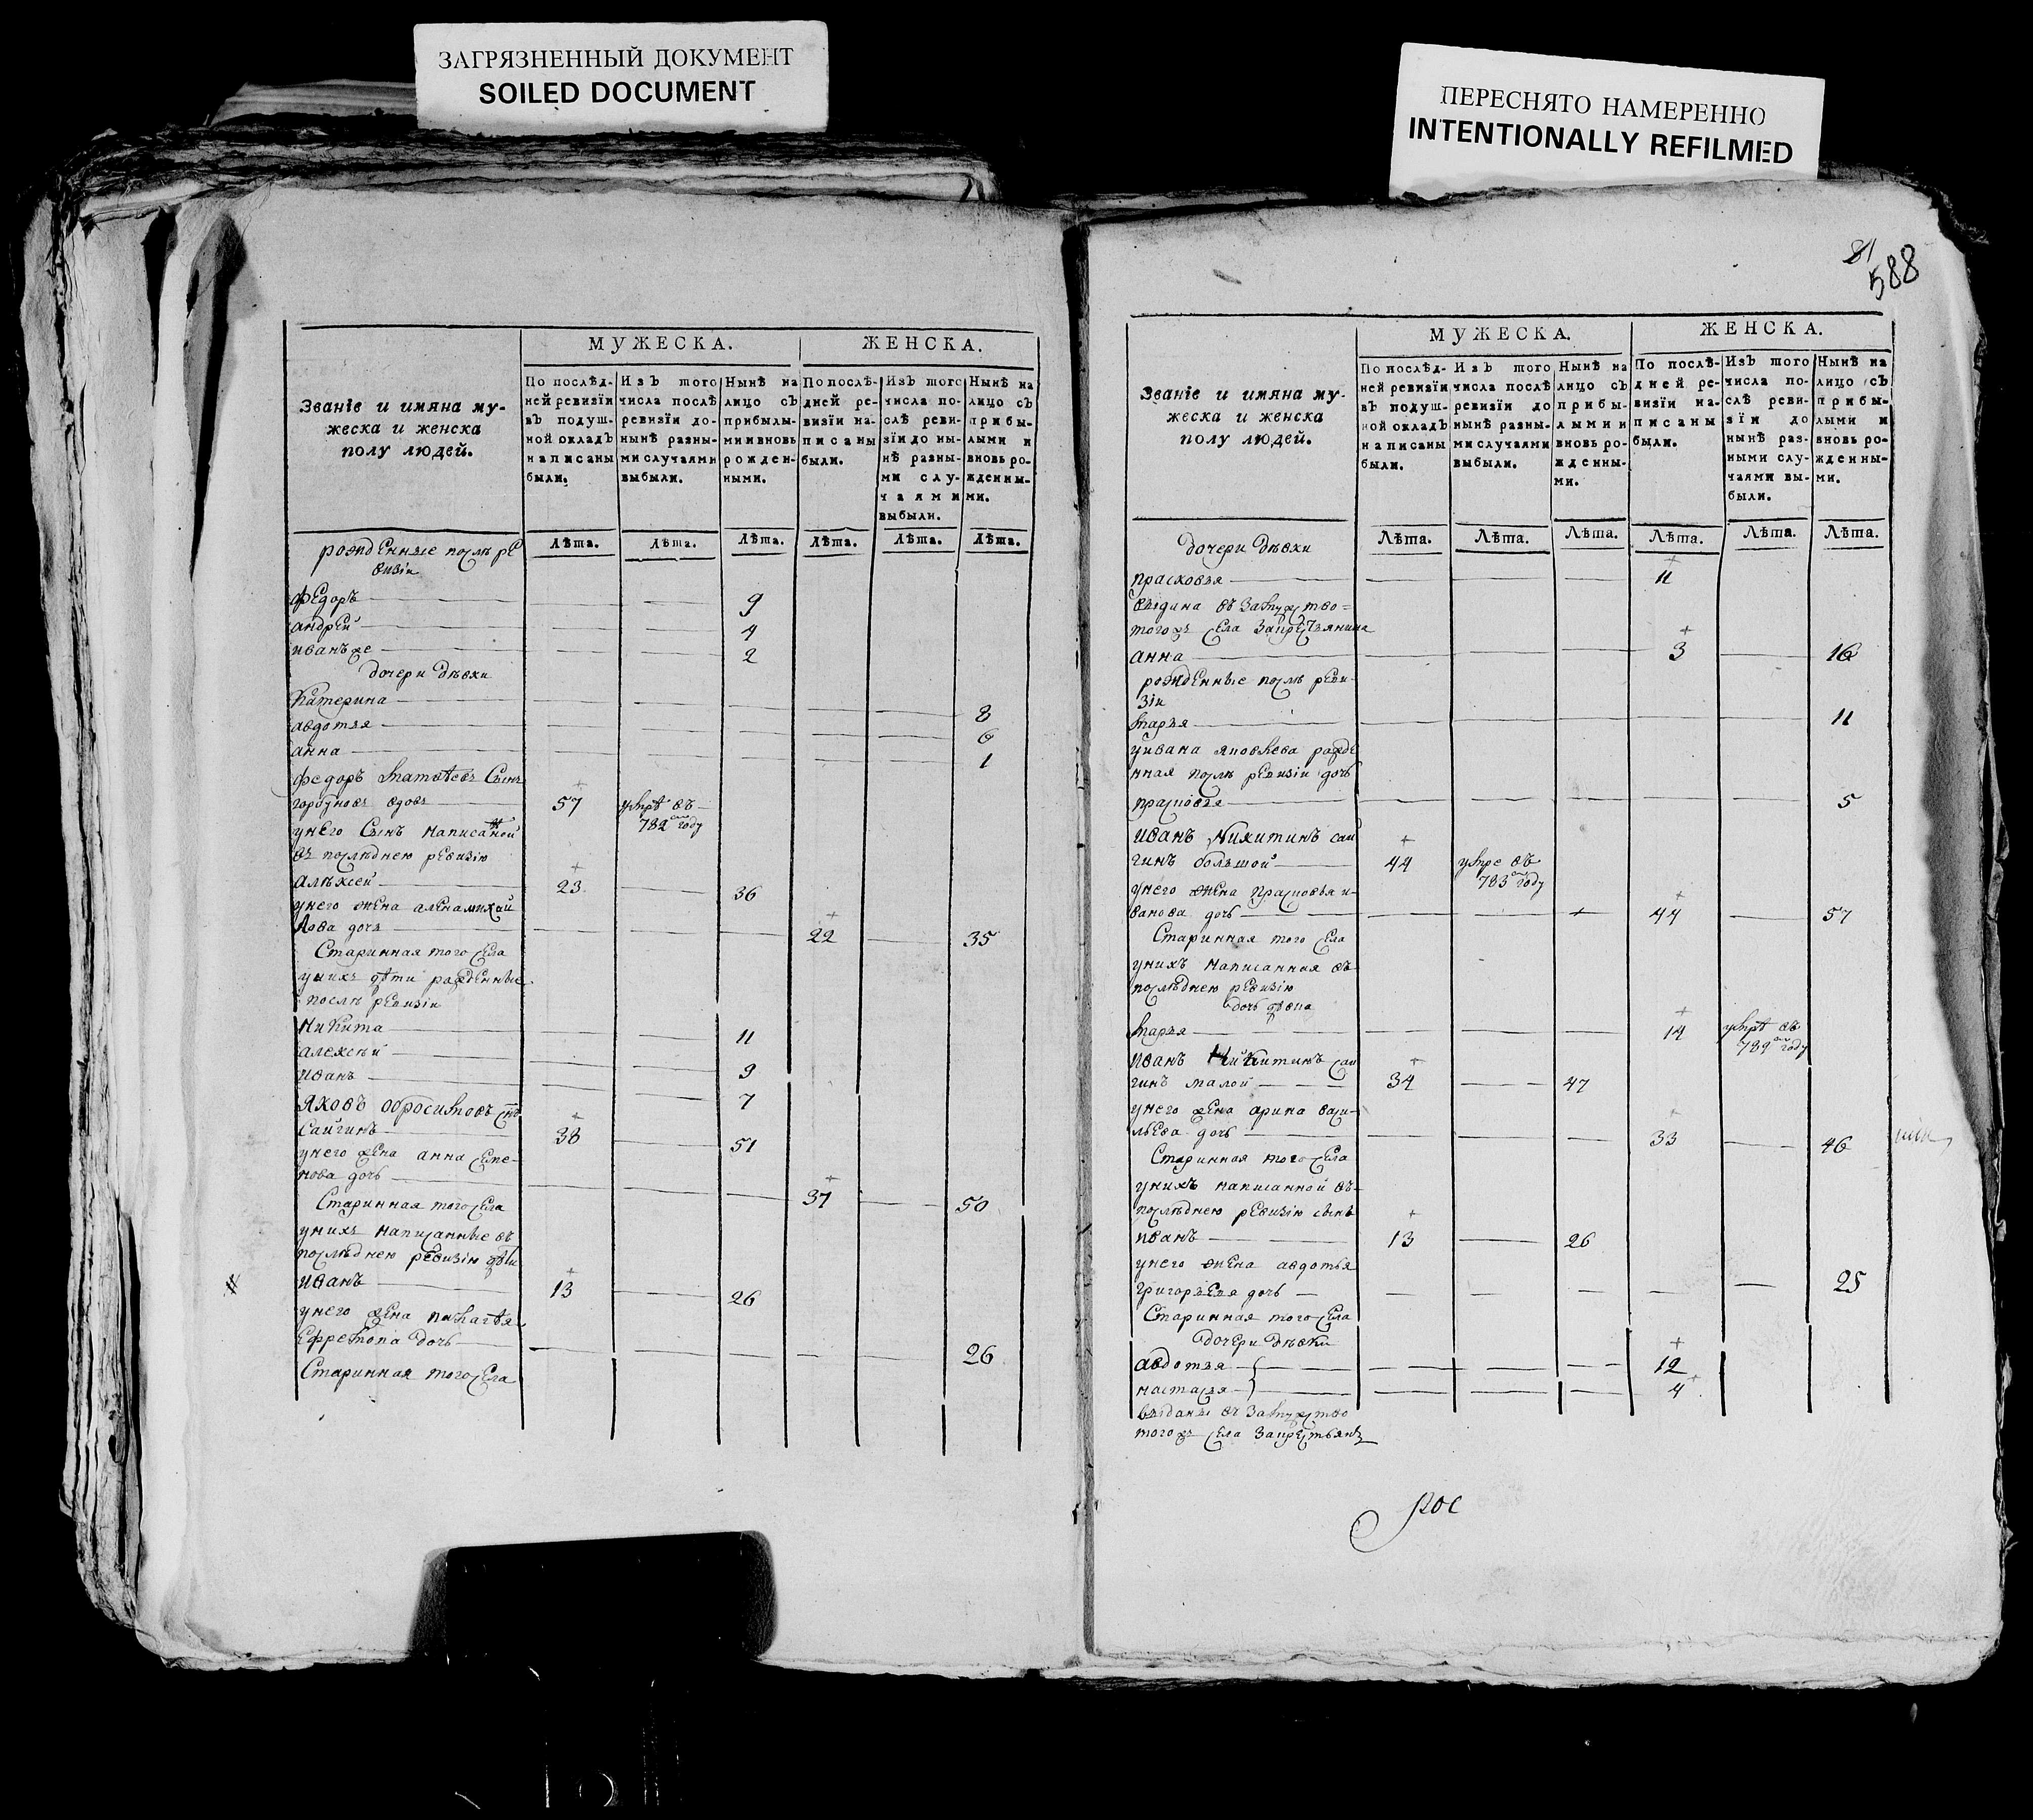 ЗАГРЯЗНЕННЫЙ ДОКУМЕНТ
SOILED DOCUMENT
ПЕРЕСНЯТО НАМЕРЕННО
INTENTIONALLY REFILMED
Званіе и имяна му-
жеска и женска
полу людей.
МУЖЕСКА.
ЖЕНСКА.
По послѣд-
ней ревизіи
въ подуш-
ной окладъ
написаны
были.
Изъ того
числа послѣ
ревизіи до-
нынѣ разны-
ми случаями
выбыли.
Нынѣ на
лицо съ
прибылы-
ми и вновь
рожден-
ными.
По послѣ-
дней ре-
визіи на-
писаны
были.
Изъ того
числа по-
слѣ реви-
зіи до ны-
нѣ разны-
ми слу-
чаями
выбыли.
Нынѣ на
лицо съ
прибы-
лыми и
вновь ро-
жденны-
ми.
Лѣта. Лѣта. Лѣта. Лѣта. Лѣта. Лѣта.
рожденные послѣ ре
визіи
федоръ 9
андрей 4
иванъ же 2
дочери дѣвки
Катерина 8
авдотья 6
анна 1
федоръ матвѣевъ Сынъ
горбуновъ вдовъ 57 умрѣ въ
782 году
унего Сынъ написанной
въ послѣднею ревизію
алѣксей 23 36
унего жена алена михай
лова дочь 22 35
Старинная того села
унихъ дѣти рожденные
послѣ ревизіи
Никита 11
алексѣй 9
иванъ 7
яковъ обросимовъ снъ
Сайгинъ 38 51
унего жена анна семе-
нова дочь 37 50
Старинная того села
унихъ написанные въ
послѣднею ревизію дѣти
иванъ 13 26
унего жена пелагѣя
Ефремова дочь 26
Старинная того села
81
588
Званіе и имяна му-
жеска и женска
полу людей.
МУЖЕСКА.
ЖЕНСКА.
По послѣд-
ней ревизіи
въ подуш-
ной окладъ
написаны
были.
Изъ того
числа послѣ
ревизіи до
нынѣ разны-
ми случаями
выбыли.
Нынѣ на
лицо съ
прибы-
лыми и
вновь ро-
жденны-
ми.
По послѣ-
дней ре-
визіи на-
писаны
были.
Изъ того
числа по-
слѣ реви-
зіи до
нынѣ раз-
ными слу-
чаями вы-
были.
Нынѣ на
лицо съ
прибы-
лыми и
вновь ро-
жденны-
ми.
Лѣта. Лѣта. Лѣта. Лѣта. Лѣта. Лѣта.
дочери дѣвки
прасковья 11
выдана въ замужство
тогожъ села закрестьянина
анна 3 16
рожденные послѣ реви-
зіи
марья 11
уивана яковлева рожде
нная послѣ ревизіи дочь
прасковья 5
иванъ Никитинъ сай
гинъ большой 44 умре въ
783 году
унего жена прасковья и-
ванова дочь 44 57
Старинная того села
унихъ написанная въ
послѣднею ревизію
дочь дѣвка
марья 14 умрѣ въ
789 году
иванъ Никитинъ сай
гинъ малой 34 47
унего жена арина васи-
льева дочь 33 46
Старинная того села
унихъ написанной въ
послѣднею ревизію сынъ
иванъ 13 26
унего жена авдотья
григорьева дочь 25
Старинная того села
дочери дѣвки
авдотья 12
настасья 4
выданы въ замужство
тогожъ села закрестьянъ